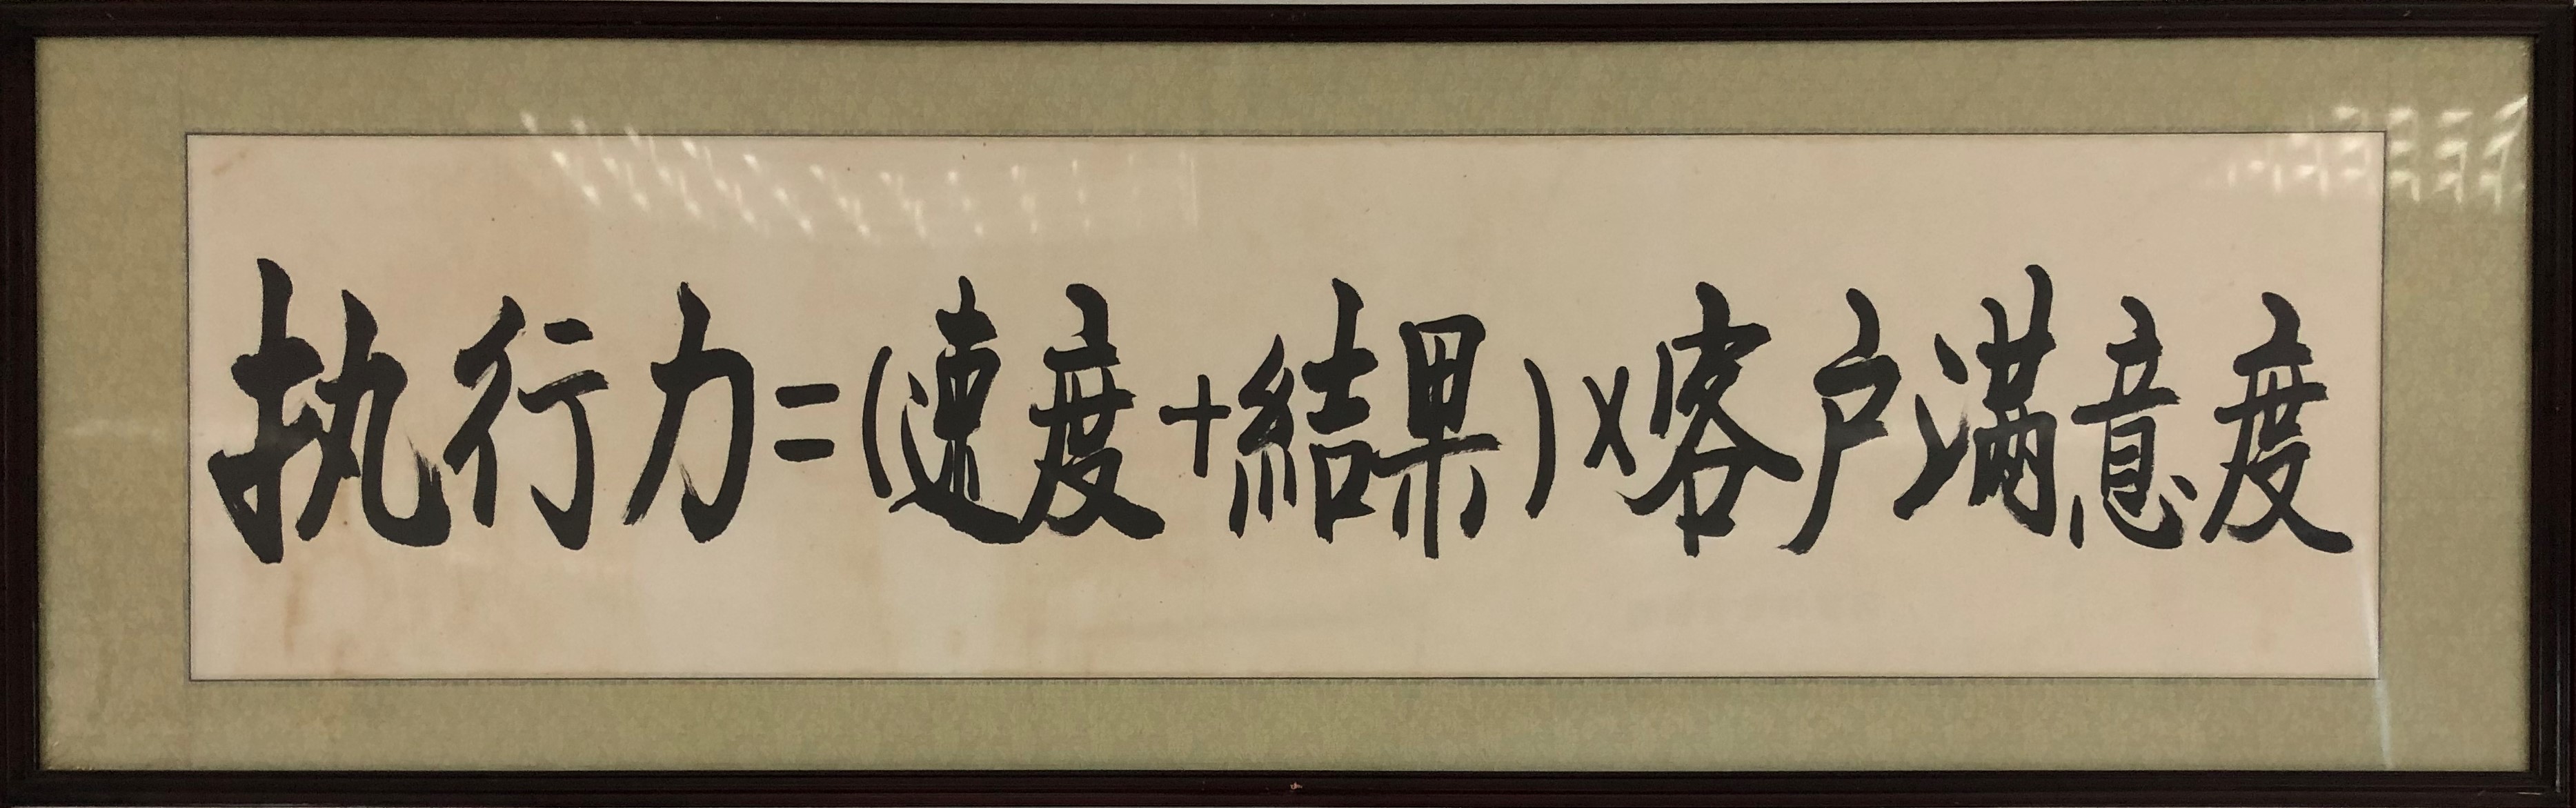 执行力=(速度+結果)×客户滿意度